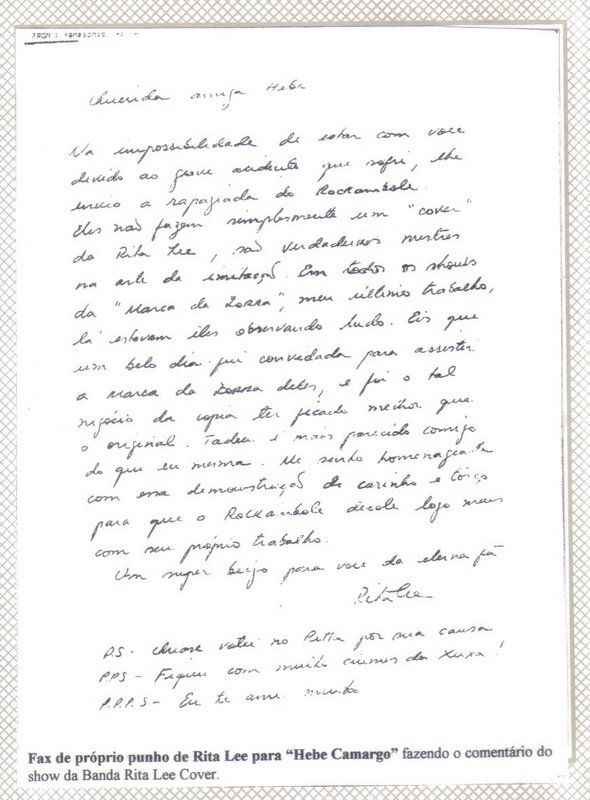 FROM : Panasonic
Querida amiga Hebe
Na impossibilidade de estar com você
devido ao grave acidente que sofri, lhe
envio a rapaziada do Rockambole.
Eles não fazem simplesmente um "cover"
da Rita Lee, são verdadeiros mestres
na arte da imitação. Em todos os shows
da "Marca da Zorra", meu último trabalho,
lá estavam eles observando tudo. Eis que
um belo dia fui convidada para assistir
a Marca da Zorra deles, e foi o tal
negócio da copia ter ficado melhor que
o original. Tadeu é mais parecido comigo
do que eu mesma. Me sinto homenageada
com essa demonstração de carinho e torço
para que o Rockambole decole logo mais
com seu próprio trabalho.
Um super beijo para você da eterna fã
Rita Lee
PS - Quase votei no Pitta por sua causa
P.PS - Fiquei com muito ciumes da Xuxa!
P.P.P.S - Eu te amo muito
Fax de próprio punho de Rita Lee para “Hebe Camargo” fazendo o comentário do
show da Banda Rita Lee Cover.